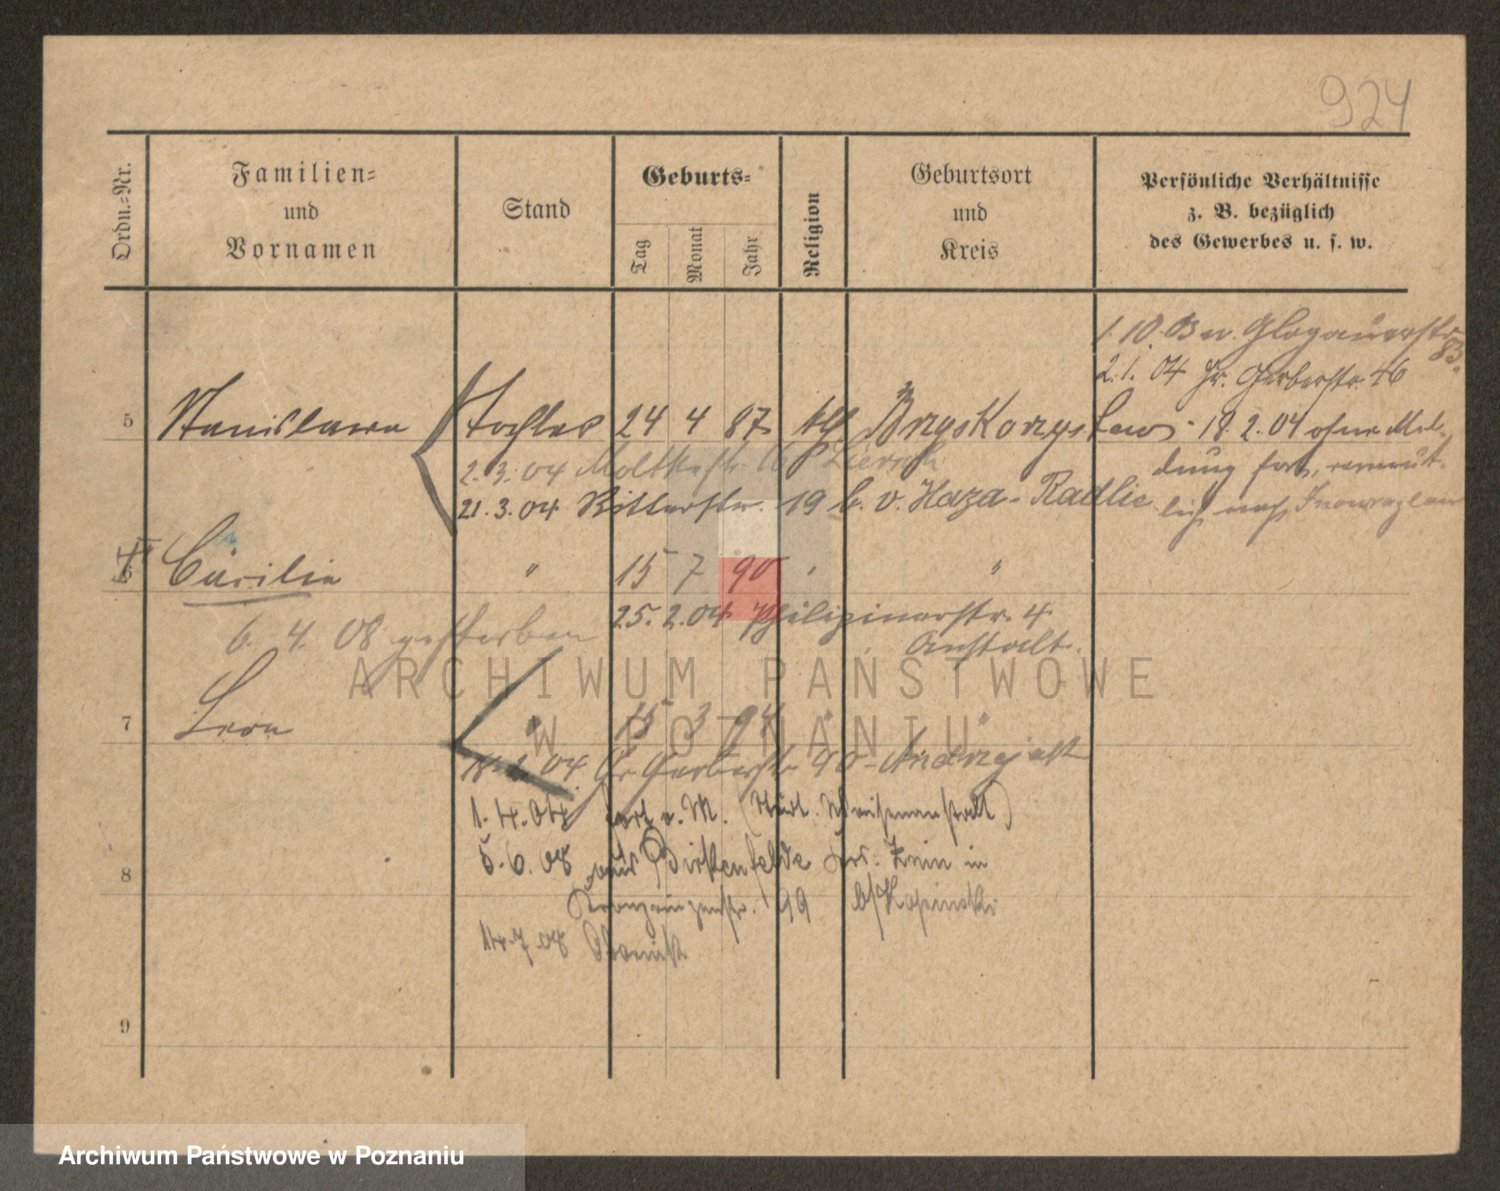 924
Ordn.-Nr.
Familien-
und
Vornamen
Stand
Geburts-
Tag
Monat
Jahr
Religion
Geburtsort
und
Kreis
Persönliche Verhältnisse
z. B. bezüglich
des Gewerbes u. s. w.
1. 10. 03 n. Glogauerstr.
83.
2. 1. 04 Gr. Gerberstr. 46
5 Stanislawa Tochter 24 4 87 kth. Brzyskorzystew - 18. 2. 04 ohne Mel-
dung fort, vermut-
lich nach Inowrazlaw
2. 3. 04 Moltkestr. 16
21. 3. 04 Ritterstr. 19 b. v. Haza-Radlic
6 Cäcilie " 15 7 90 " "
25. 2. 04 Philippinenstr. 4
6. 4. 08 gestorben
Anstalt.
7 Leon " 15 3 94 " "
04 Gr. Gerberstr. 90 - Andrzejak
1. 4. 04 fort o. M. (Städt. Waisenanstalt)
8 5. 6. 08 aus Birkenfelde Krs. Znin in
Kronprinzenstr. 99 b/
14. 7. 08
9
ARCHIWUM PAŃSTWOWE
W POZNANIU
Archiwum Państwowe w Poznaniu